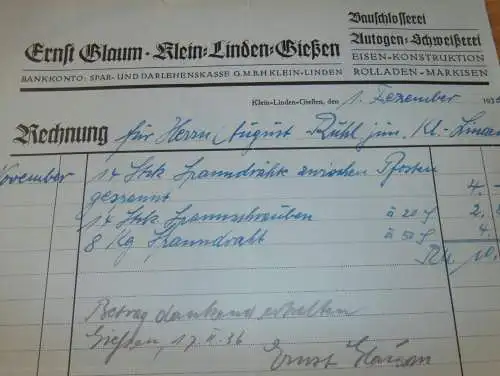 Bauschlosserei
Autogen-Schweißerei
Ernst Glaum · Klein-Linden-Gießen
EISEN-KONSTRUKTION
BANKKONTO: SPAR- UND DARLEHENSKASSE G.M.B.H KLEIN-LINDEN
ROLLADEN-MARKISEN
Klein-Linden-Gießen, den 1. Dezember 193
Rechnung für Herrn August Rühl jun. Kl.-Linden
November 14 Stck Spanndrähte zwischen Pfosten
gespannt 4.
14 Stck Spannschrauben à 20 ₰ 2.
8 Kg Spanndraht à 50 ₰ 4.
RM 10.
Betrag dankend erhalten
Giessen, 17. II. 36
Ernst Glaum